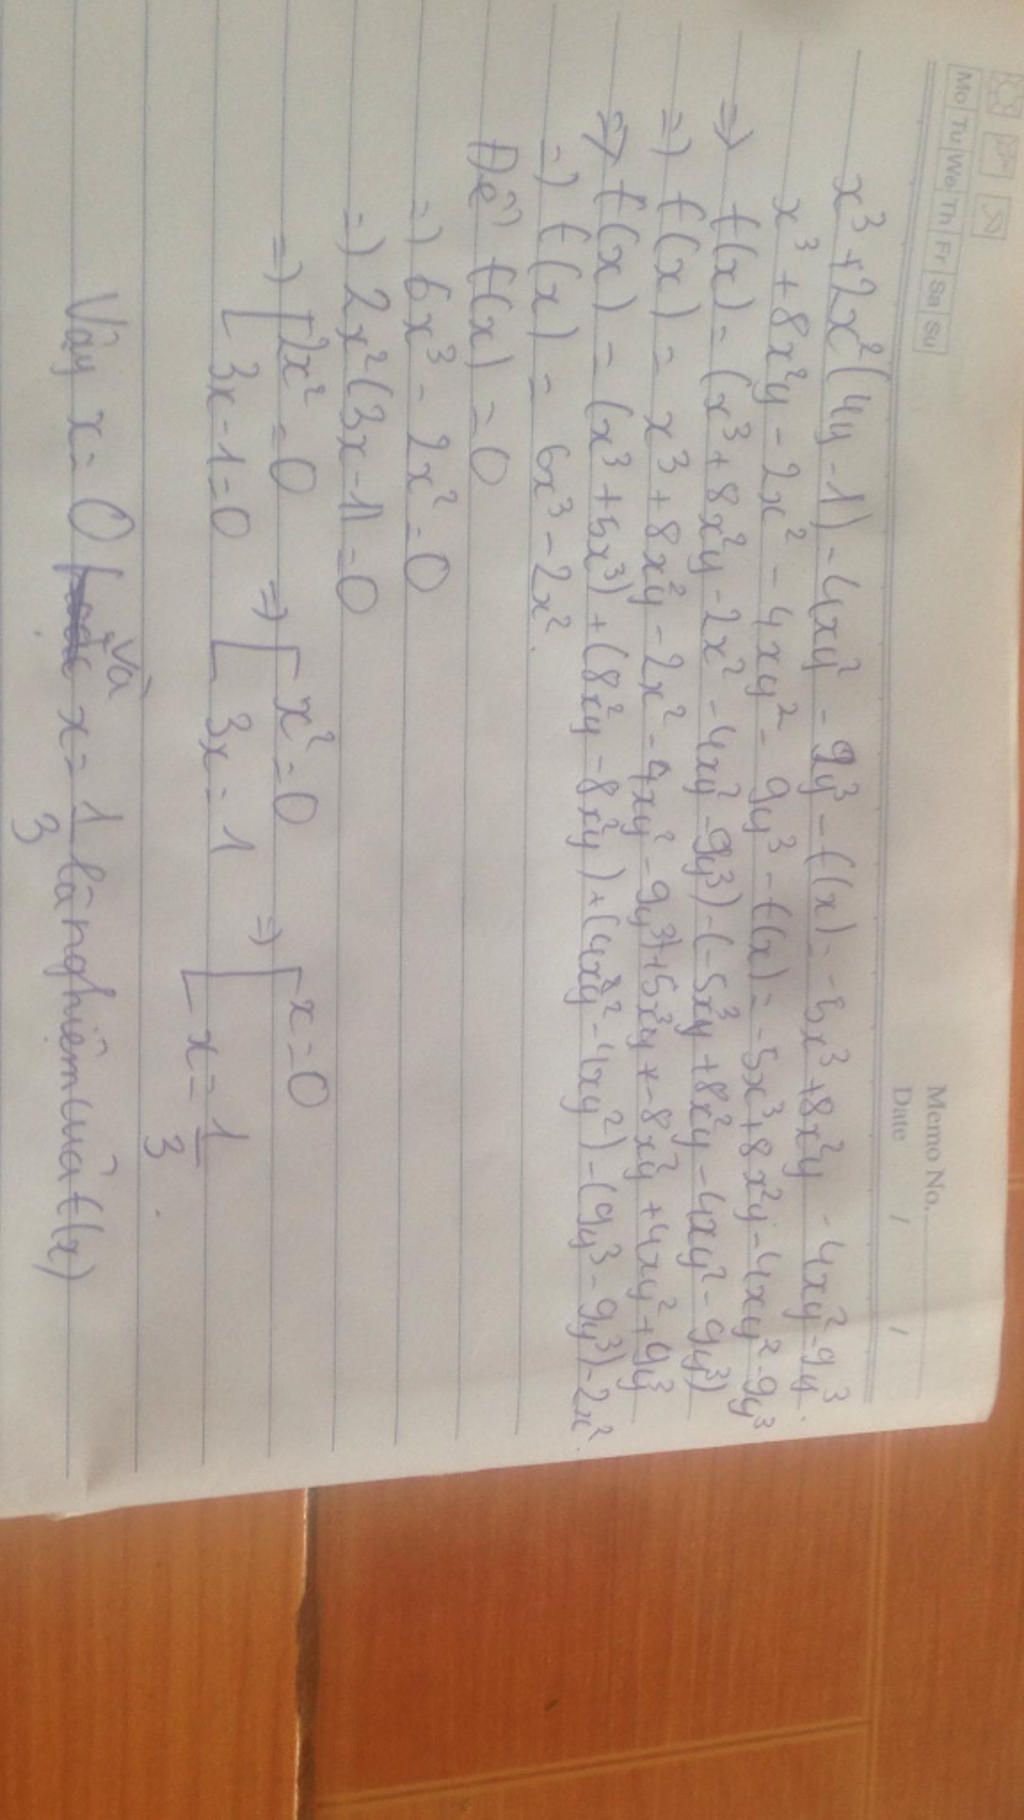 Mo Tu We Th Fr Sa Su
Memo No.
Date / /
x³ + 2x²(4y - 1) - 4xy² - 9y³ - f(x) = -5x³ + 8x²y - 4xy² - 9y³.
x³ + 8x²y - 2x² - 4xy² - 9y³ - f(x) = -5x³ + 8x²y - 4xy² - 9y³
=) f(x) = (x³ + 8x²y - 2x² - 4xy² - 9y³) - (-5x³y + 8x²y - 4xy² - 9y³)
=) f(x) = x³ + 8x²y - 2x² - 4xy² - 9y³) + 5x³y + -8x²y + 4xy² + 9y³
=) f(x) = (x³ + 5x³) + (8x²y - 8x²y) + (4xy² - 4xy²) - (9y³ - 9y³) - 2x².
=) f(x) = 6x³ - 2x².
Để f(x) = 0
=) 6x³ - 2x² = 0
=) 2x²(3x - 1) = 0
=) [ 2x² = 0 =) [ x² = 0 =) [ x = 0
3x - 1 = 0 3x = 1 x = 1/3.
Vậy x = 0 và x = 1/3 là nghiệm của f(x)